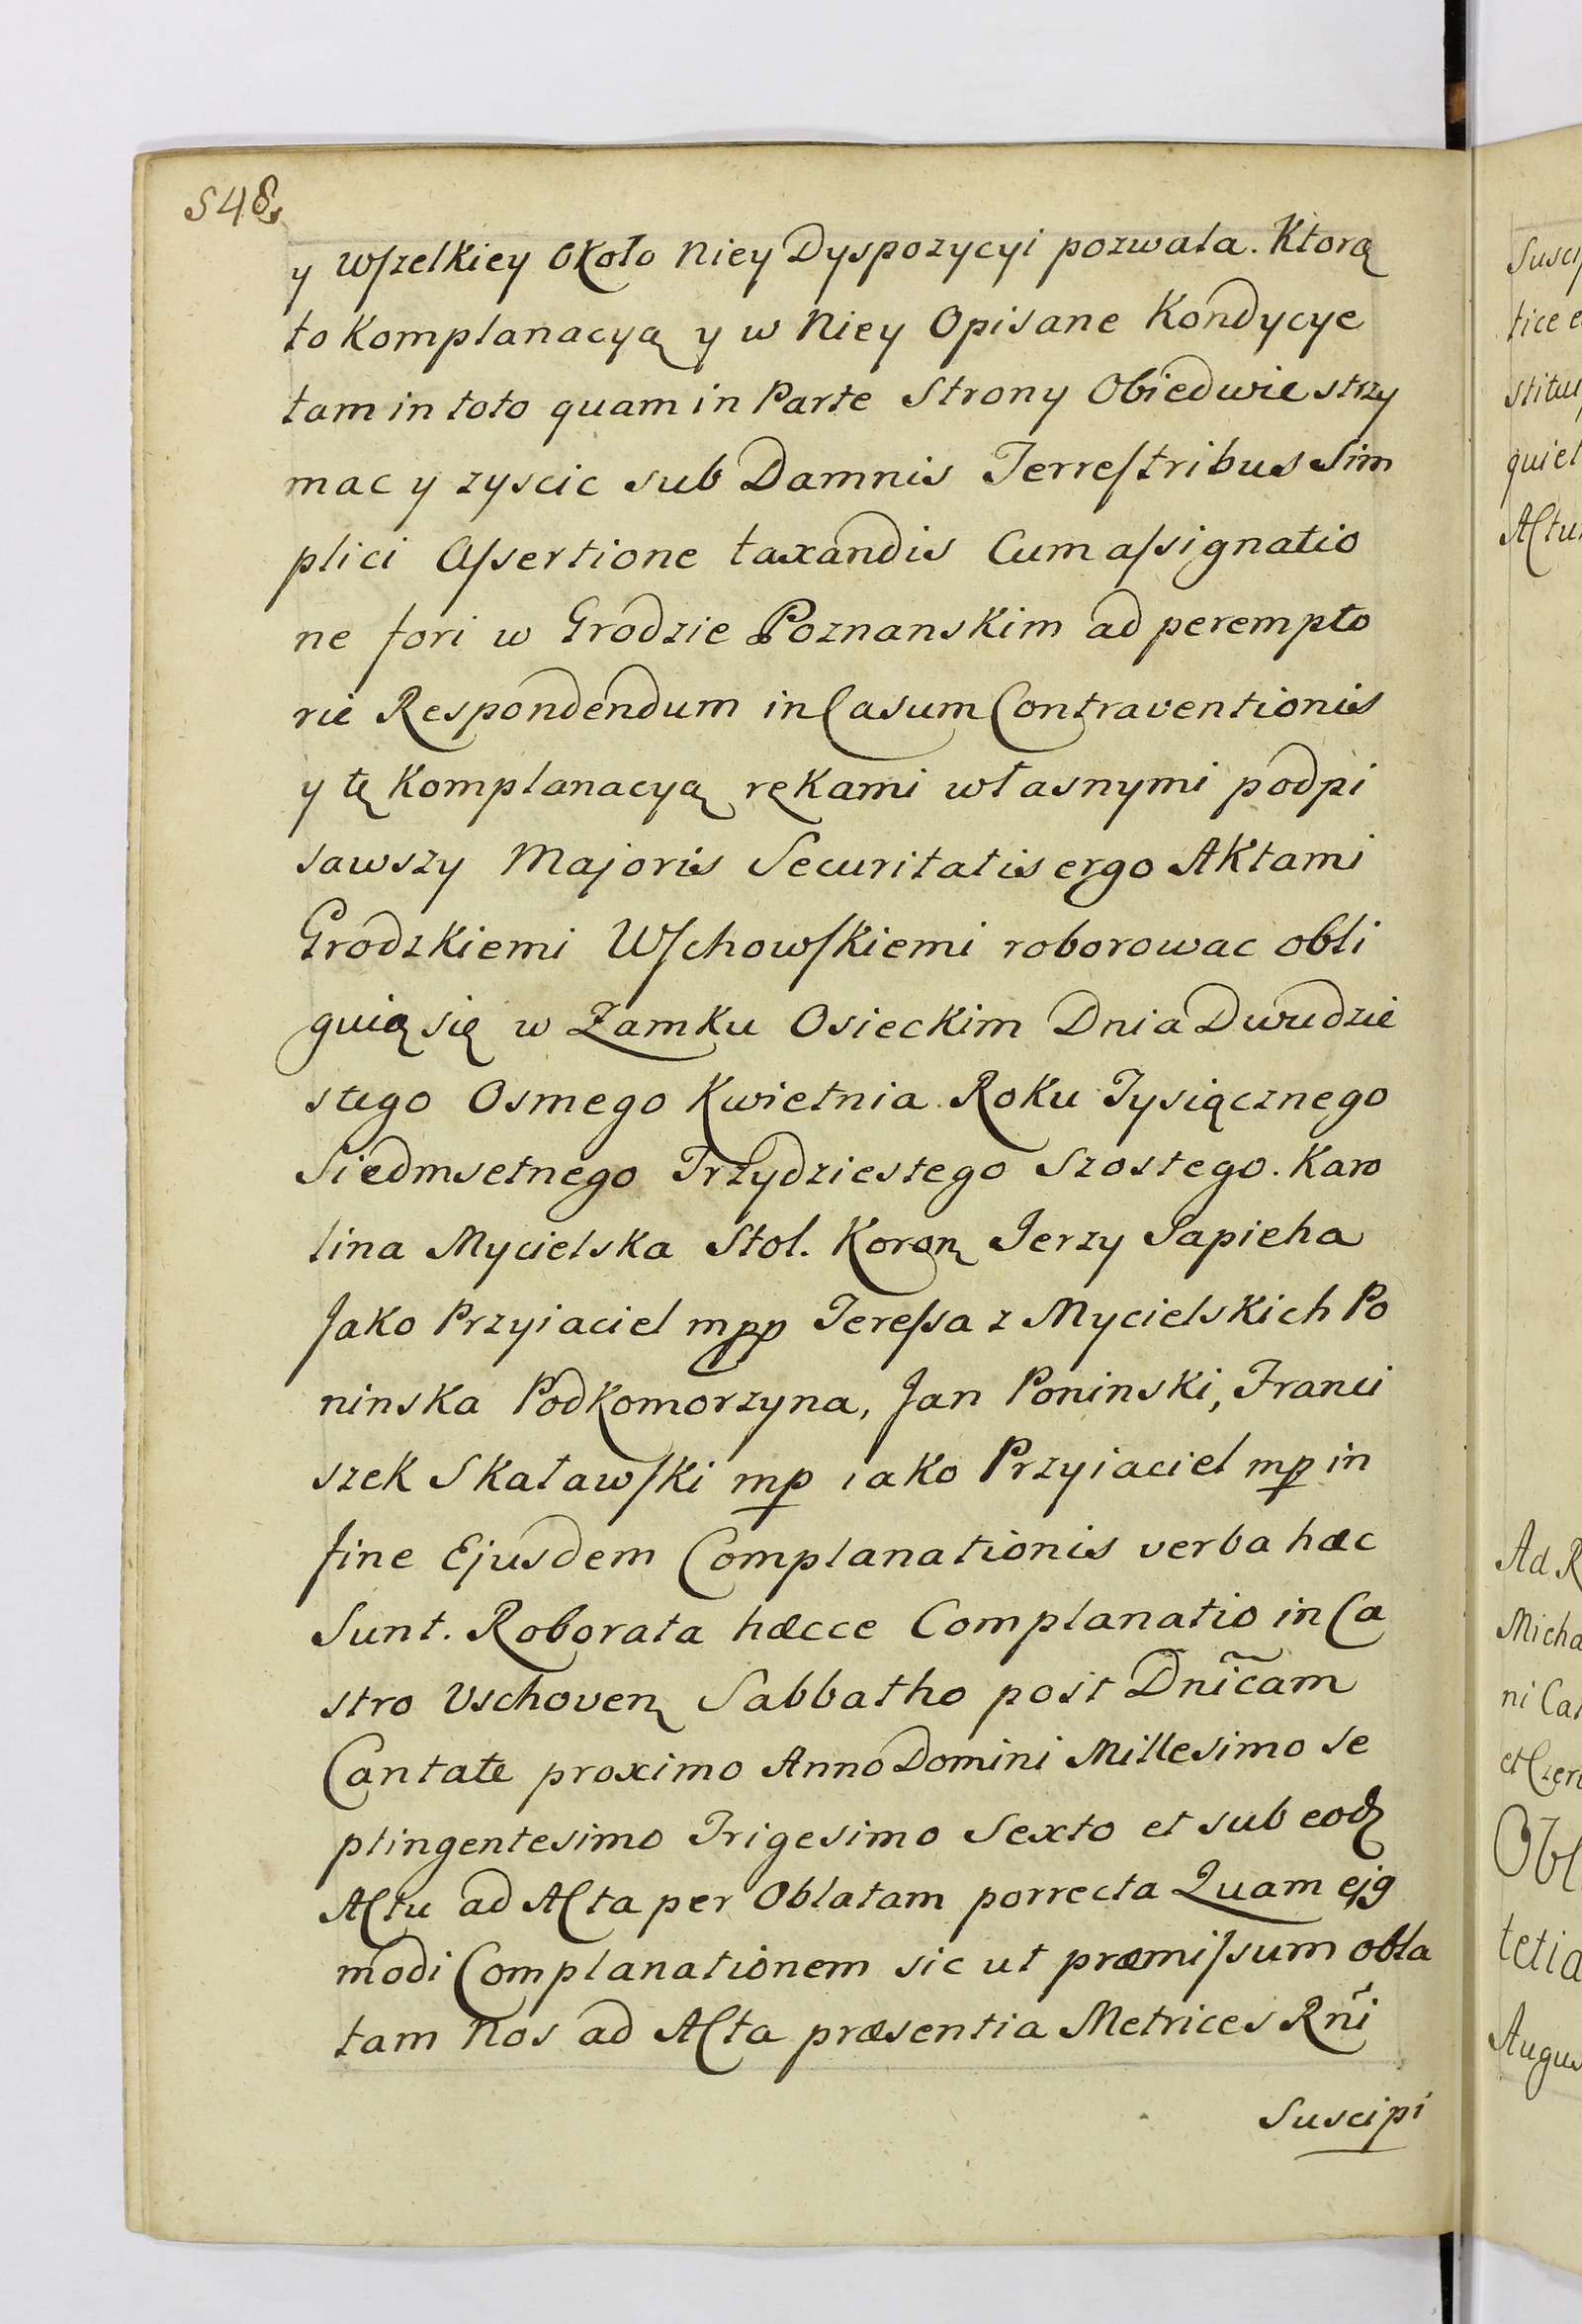 548
y Wszelkiey około Niey Dyspozycyi pozwala. Ktorą
to Komplanacyą y w Niey Opisane Kondycye
tam in toto quam in Parte Strony Obiedwie strzy
mac y zyscic sub Damnis Terrestribus Sim
plici Assertione taxandis Cum assignatio
ne fori w Grodzie Poznanskim ad perempto
rie Respondendum in Casum Contraventionis
y tę Komplanacyą rękami własnymi podpi
sawszy Majoris Securitatis ergo Aktami
Grodzkiemi Wschowskiemi roborowac obli
guią się w Zamku Osieckim Dnia Dwudzie
stego Osmego Kwietnia Roku Tysiącznego
Siedmsetnego Trzydziestego Szostego. Karo
lina Mycielska Stol. Koron Jerzy Sapieha
Jako Przyiaciel mpp Teressa z Mycielskich Po
ninska Podkomorzyna, Jan Poninski, Franci
szek Skaławski mp iako Przyiaciel mp in
fine Ejusdem Complanationis verba hæc
Sunt. Roborata hæcce Complanatio in Ca
stro Vschoven Sabbatho post Dnīcam
Cantate proximo Anno Domini Millesimo Se
ptingentesimo Trigesimo Sexto et sub eodȝ
Actu ad Acta per Oblatam porrecta Quam ejꝰ
modi Complanationem sic ut præmissum obla
tam Nos ad Acta præsentia Metrices Rn̄i
Suscipi
Susci
tice e
stitu
quiet
Actu
Ad R
Micha
ni Ca
et Czer
Obl
tetia
Augus